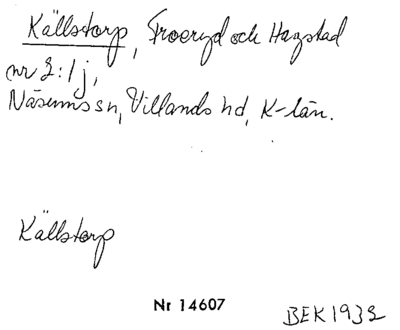 Källstorp, Froeryd och Hagstad
nr 2:1j,
Näsums sn, Villands hd, K-län.
Källstorp
Nr 14607
BEK 1932